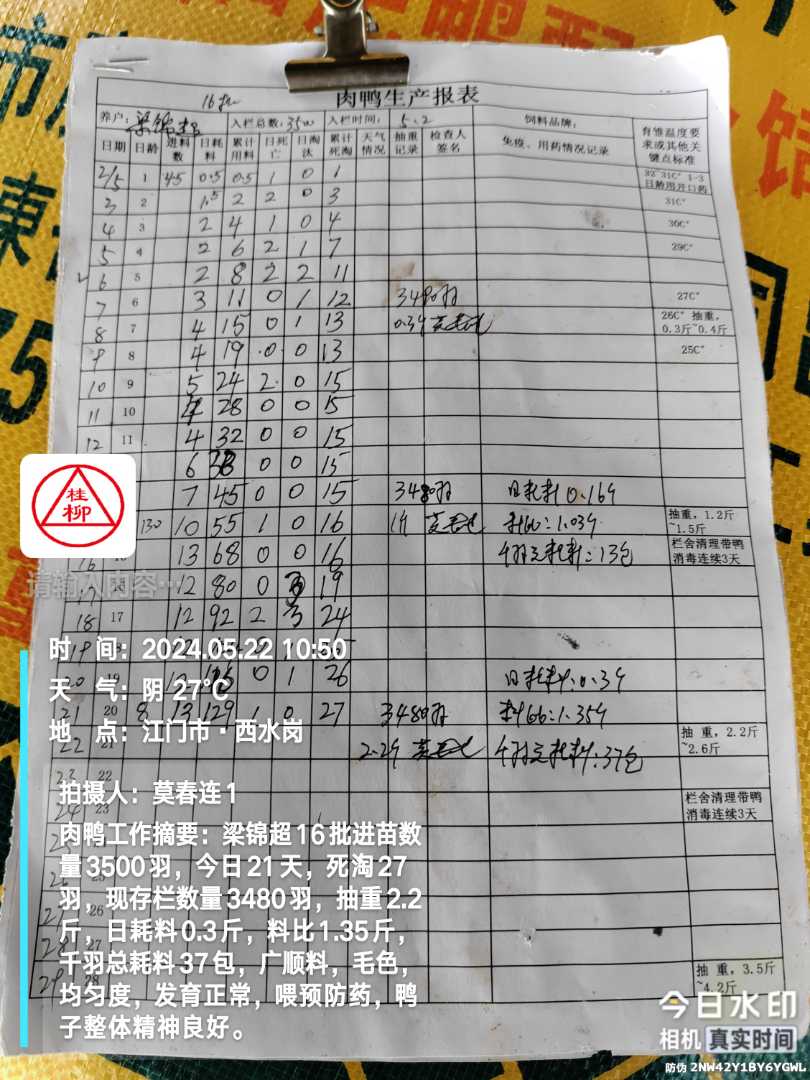 16批
肉鸭生产报表
养户：梁锦超 入栏总数：3500 入栏时间：5.2 饲料品牌：
日期 日龄 进料数 日耗料 累计用料 日死亡 日淘汰 累计死淘 天气情况 抽重记录 检查人签名 免疫、用药情况记录 育雏温度要求或其他关键点标准
2/5 1 45 0.5 0.5 1 0 1 32~31C° 1-3日龄用开口药
3 2 1.5 2 2 0 3 31C°
4 3 2 4 1 0 4 30C°
5 4 2 6 2 1 7 29C°
6 5 2 8 2 2 11
7 6 3 11 0 1 12 3480羽 27C°
8 7 4 15 0 1 13 0.39 26C° 抽重，0.3斤~0.4斤
9 8 4 19 0 0 13 25C°
10 9 5 24 2 0 15
11 10 4 28 0 0 15
12 11 4 32 0 0 15
6 38 0 0 15
7 45 0 0 15 3480羽 日耗料0.16斤
130 10 55 1 0 16 1斤 料比：1.03斤 抽重，1.2斤~1.5斤
16 13 68 0 0 16 千羽总耗料：13包 栏舍清理带鸭消毒连续3天
17 16 12 80 0 3 19
18 17 12 92 2 3 24
19
20 19 0 1 26 日耗料：0.3斤
21 20 8 13 129 1 0 27 3480羽 料比：1.35斤
22 21 2.2斤 千羽总耗料：37包 抽重，2.2斤~2.6斤
23 22
24 23 栏舍清理带鸭消毒连续3天
26
27
29 28 抽重，3.5斤~4.2斤
桂柳
请输入内容…
时 间：2024.05.22 10:50
天 气：阴 27℃
地 点：江门市·西水岗
拍摄人：莫春连1
肉鸭工作摘要：梁锦超16批进苗数
量3500羽，今日21天，死淘27
羽，现存栏数量3480羽，抽重2.2
斤，日耗料0.3斤，料比1.35斤，
千羽总耗料37包，广顺料，毛色，
均匀度，发育正常，喂预防药，鸭
子整体精神良好。
今日水印
相机 真实时间
防伪 2NW42Y1BY6YGWL